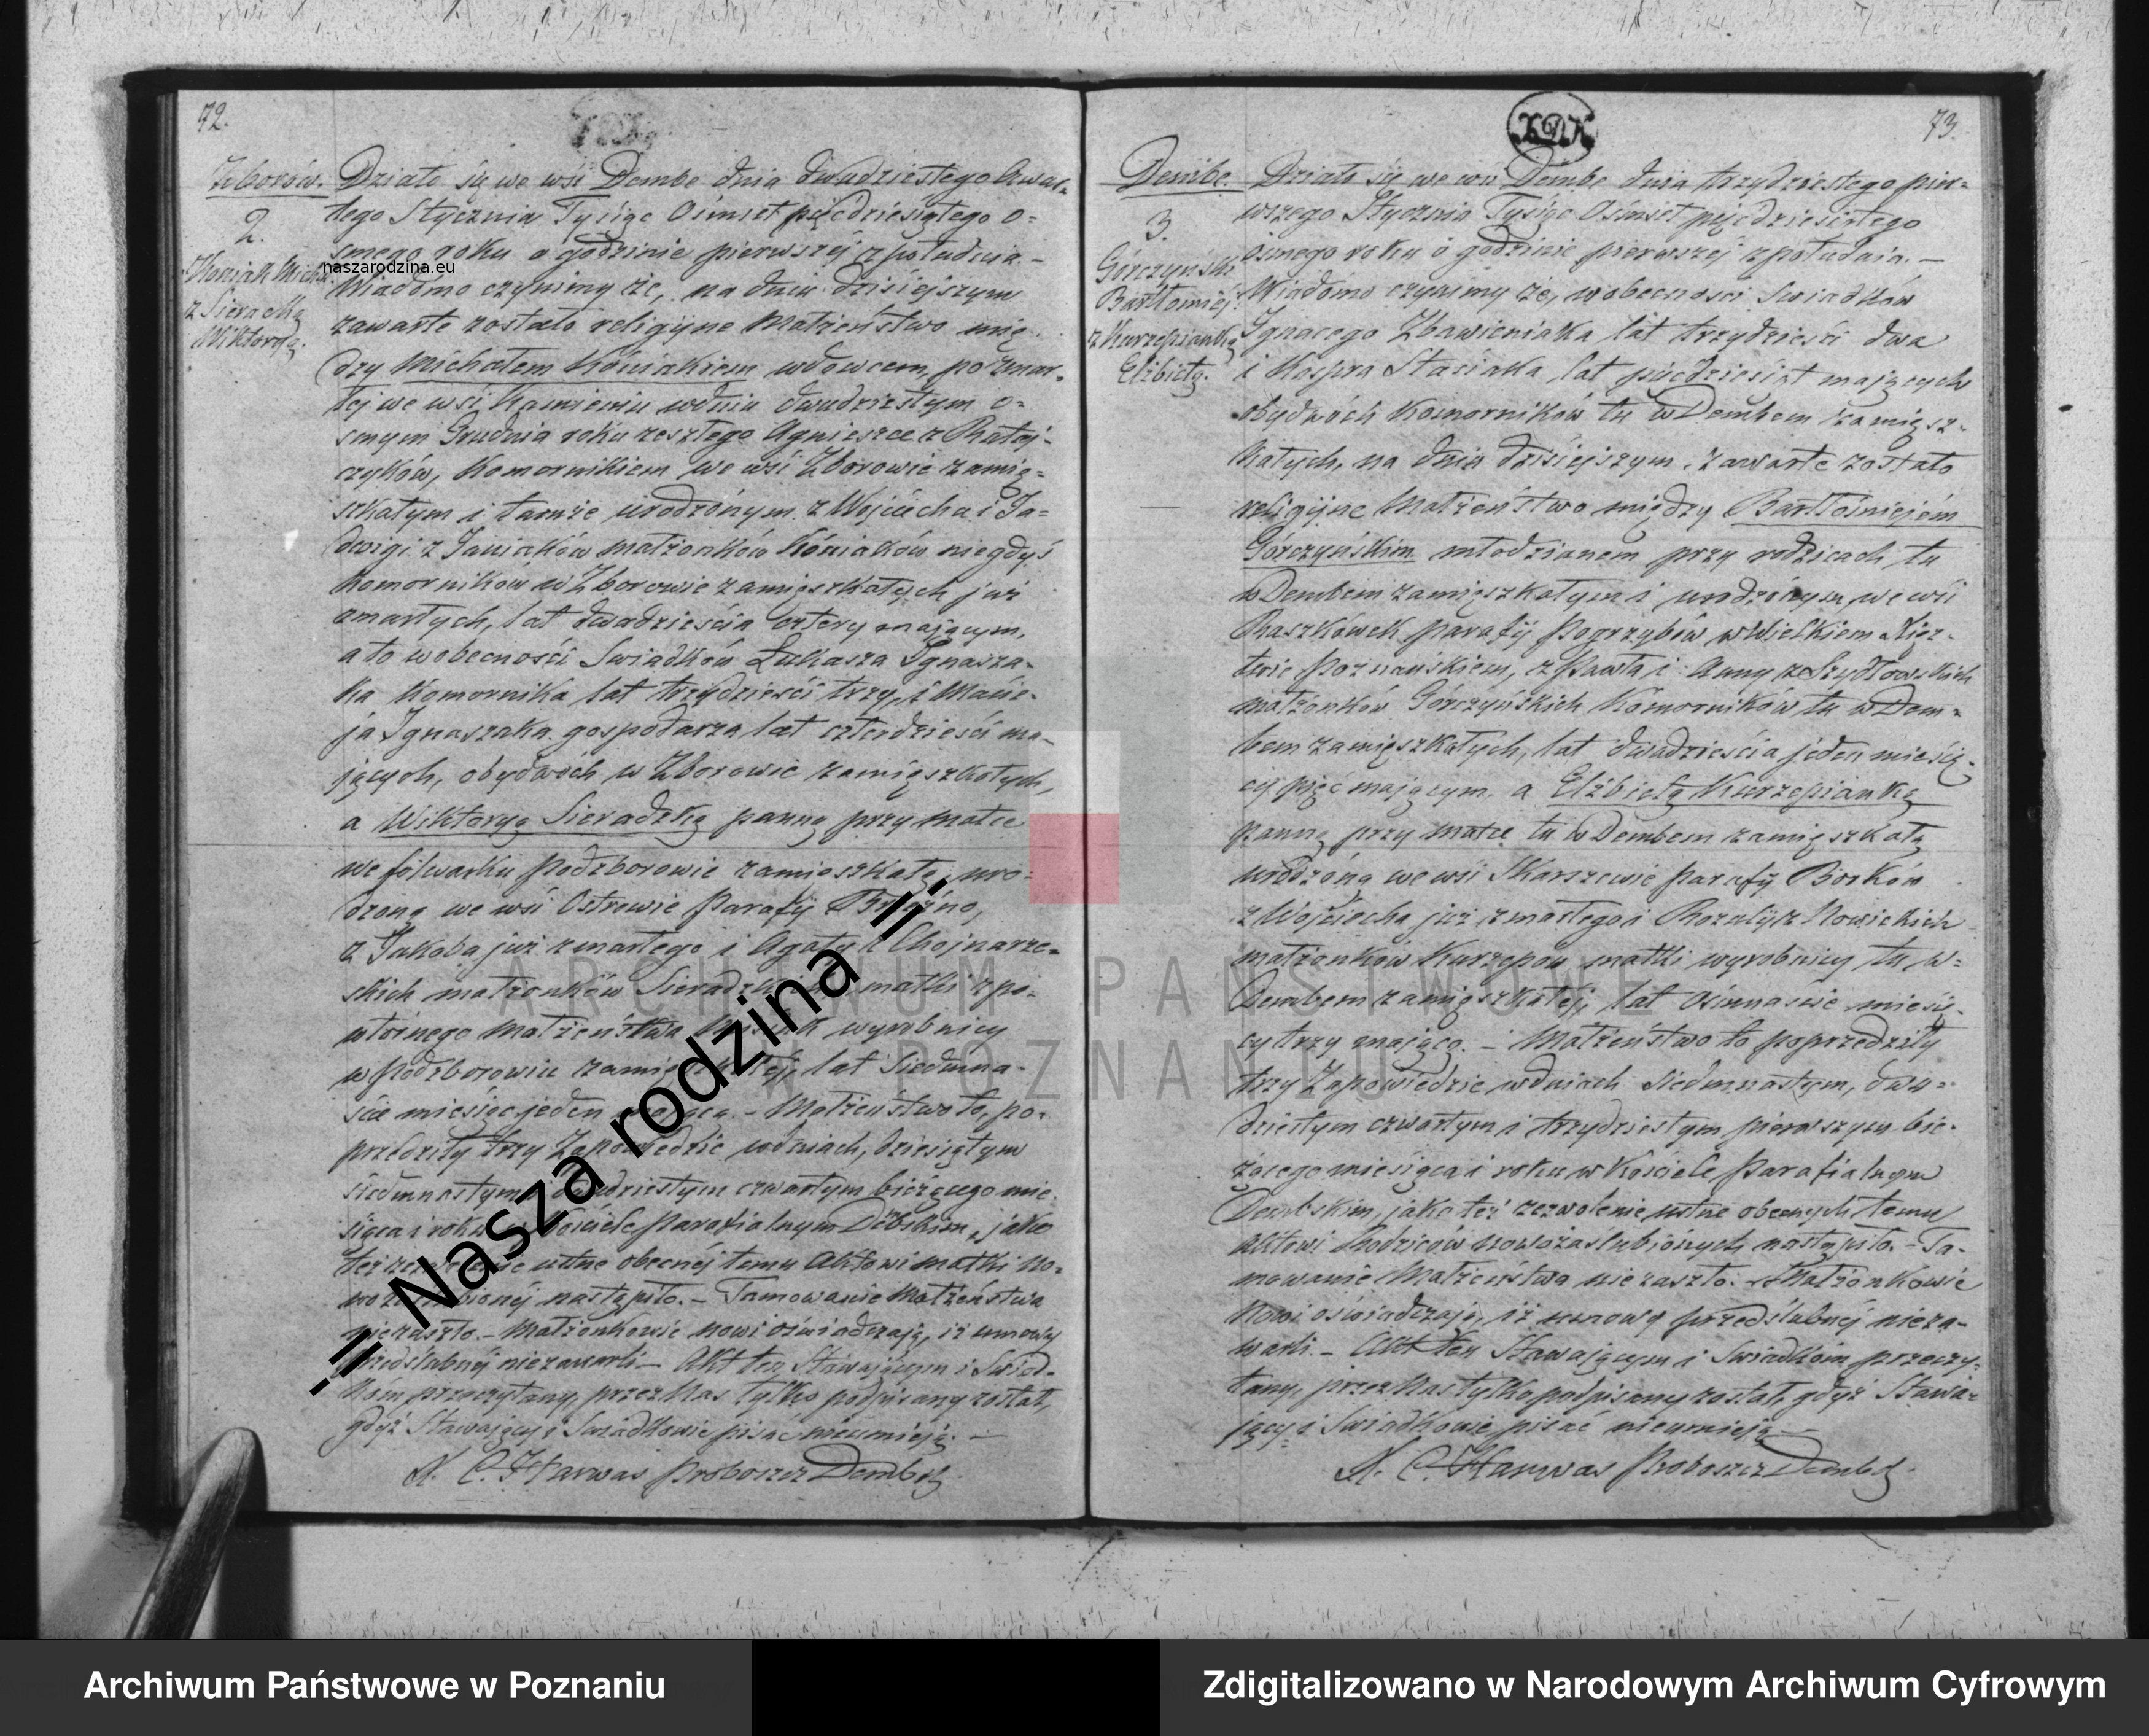 72.
Zborów.
2.
Koniak Michał
z Sieradzką
Wiktoryą.
Działo się we wsi Dembe dnia dwudziestego czwar-
tego Stycznia Tysiąc Ośmset pięćdziesiątego o=
smego roku o godzinie pierwszej z południa. –
naszarodzina.eu
Wiadomo czynimy że, na dniu dzisiejszym
zawarte zostało religijne Małżeństwo mię-
dzy Michałem Kóniakiem wdowcem po zmar-
łej we wsi Kamieniu wdniu dwudziestym o=
smym Grudnia roku zeszłego Agnieszce z Rataj-
czyków, Komornikiem we wsi Zborowie zamię=
szkałym i tamże urodzónym z Wojciecha i Ja=
dwigi z Janiaków małżonków Kóniaków niegdyś
komorników w Zborowie zamięszkałych już
zmarłych, lat dwadzieścia cztery mającym,
a to w obecności Swiadków Łukasza Ignasza-
ka Komornika lat trzydzieści trzy, i Macie-
ja Ignaszaka gospodarza lat czterdzieści ma-
jących, obydwóch w Zborowie zamięszkałych,
a Wiktoryą Sieradzką panną przy matce
we folwarku Podzborowie zamieszkałą, uro-
dzoną we wsi Ostrowie Parafij
z Jakóba już zmarłego i Agaty z Chojnarze-
skich małżonków matki z po-
wtórnego Małżeństwa wyrobnicy
w Podzborowiu lat Siedmna-
ście miesiąc jeden mającą. – Małżeństwo to, po-
przedziły trzy Zapowiedzie wdniach, dziesiątym
siedmnastym dwudziestym czwartym bieżącego mie-
siąca i roku Kościele Parafialnym Dębskim, jako
też ustne obecnéj temu Aktowi matki no-
nastąpiło. – Tamowanie Małżeństwa
nie zaszło. – Małżonkowie nowi oświadczają, iż umowy
przedślubnéj niezawarli – Akt ten Stawającym i Swiad-
kom przeczytany, przez Nas tylko podpisany został,
gdyż Stawający i Swiadkowie pisać nieumieją. –
X. C. Harwas Proboszcz Dembsk.
KDK
73.
Dembe.
3.
Górczyński
Bartłomiéj
z Kurzepianką
Elżbietą.
Działo się we wsi Dembe dnia trzydziestego pier=
wszego Stycznia Tysiąc Ośmset pięćdziesiątego
ósmego roku o godzinie pierwszej z południa. –
Wiadomo czynimy że, wobecności Swiadków
Ignacego Zbawieniaka lat trzydzieści dwa
i Kaspra Stasiaka lat pięćdziesiąt mających
obydwóch Komorników tu w Dembem zamięsz-
kałych, na dniu dzisiejszym, zawarte zostało
religijne Małżeństwo między Bartłómiejem
Górczyńskim młodzianem przy rodzicach tu
w Dembem zamięszkałym i urodzónym we wsi
Raszkówek parafij Pogrzybów w Wielkiem Xięz-
twie Poznańskiem, z Pawła i Anny z Szydłowskich
małżonków Górczyńskich Komorników tu w Dem-
bem zamięszkałych, lat dwadzieścia jeden miesię-
cy pięć mającym, a Elżbietą Kurzepianką
panną przy Matce tu w Dembem zamięszkałą
urodzóną we wsi Skarszewie parafij Borków
z Wojciecha już zmarłego i Rozalij z Nowickich
małżonków Kurzepów matki wyrobnicy tu w=
Dembem zamięszkałéj, lat Ośmnaście miesię-
cy trzy mającą. – Małżeństwo to poprzedziły
trzy Zapowiedzie wdniach siedmnastym, dwu=
dziestym czwartym i trzydziestym pierwszym bie-
żącego miesiąca i roku w Kościele Parafialnym
Dembskim, jako też zezwolenie ustne obecnych temu
Aktowi Rodziców nowozaślubionych nastąpiło. – Ta-
mowanie Małżeństwa nie zaszło. Małżonkowie
Nowi oświadczają, iż umowy przedślubnéj nieza-
warli. – Akt ten Stawającym i Swiadkom przeczy-
tany, przez Nas tylko podpisany został, gdyż Stawa-
jący i Swiadkowie pisać nieumieją. –
X. C. Harwas Proboszcz Dembsk.
Nasza rodzina
ARCHIWUM PAŃSTWOWE
W POZNANIU
Archiwum Państwowe w Poznaniu
Zdigitalizowano w Narodowym Archiwum Cyfrowym